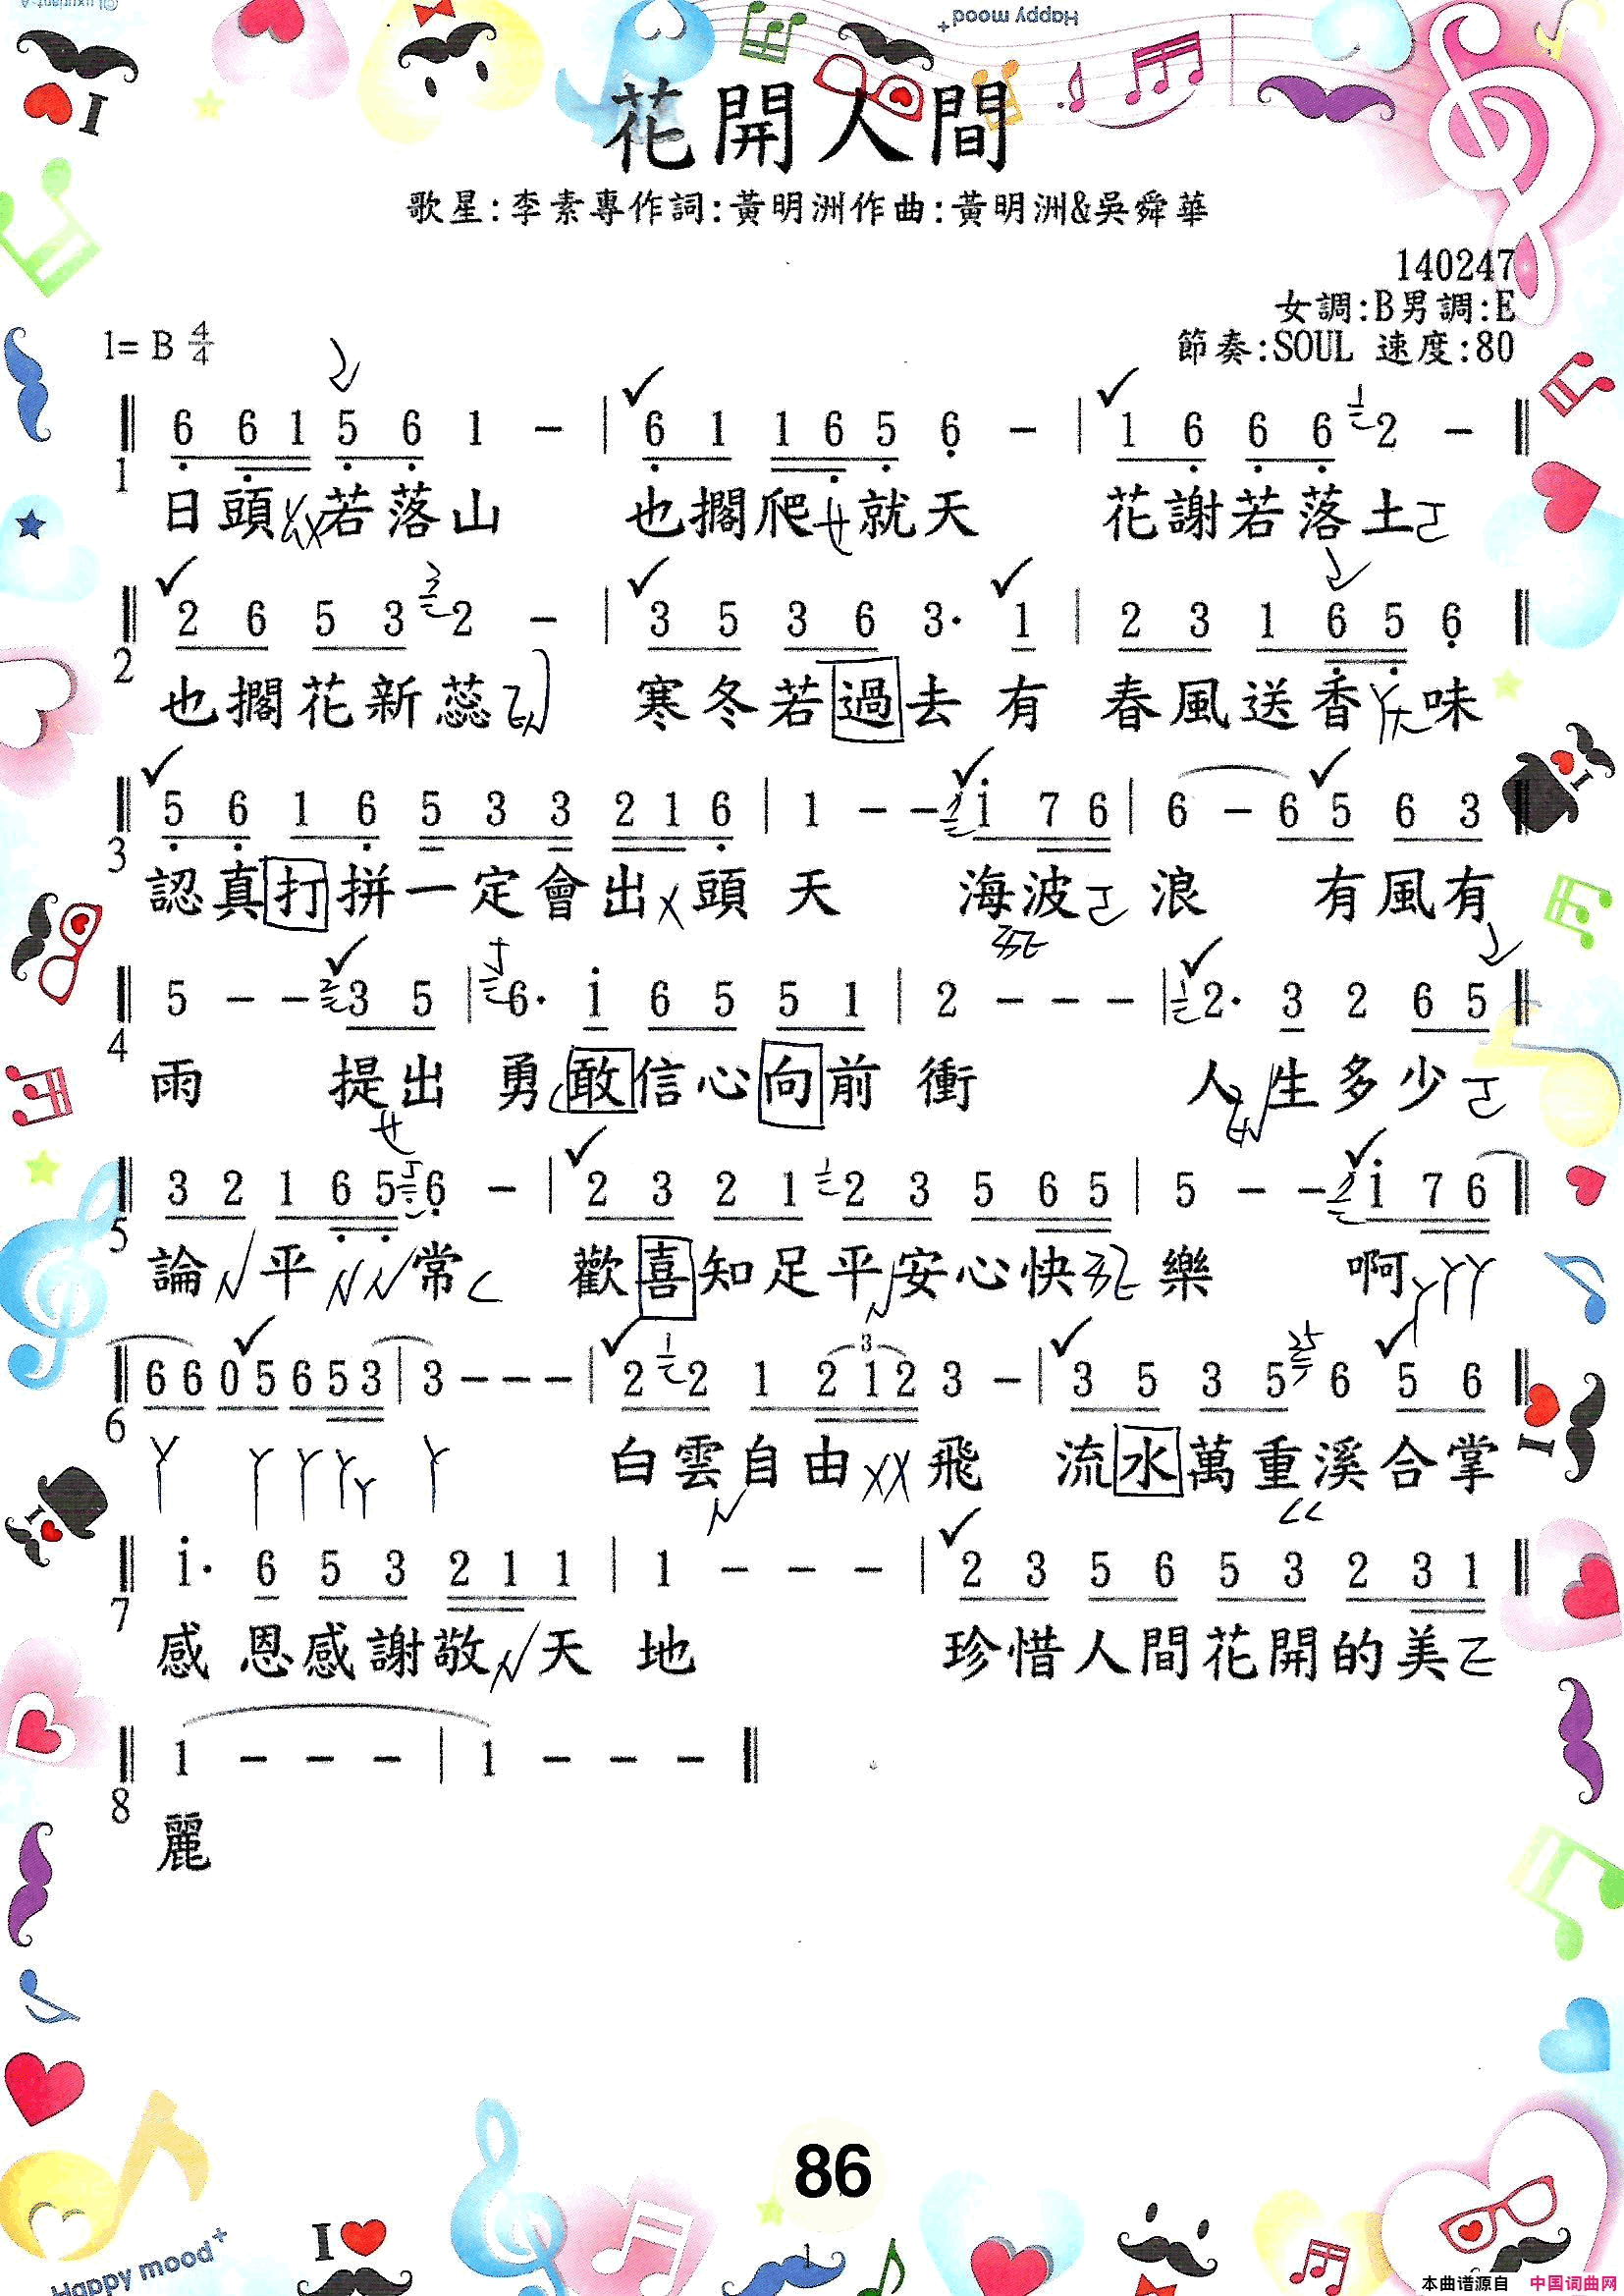 Happy mood+
I
花開人間
歌星:李素專作詞:黃明洲作曲:黃明洲&吳舜華
140247
女調:B男調:E
1= B 4/4
節奏:SOUL 速度:80
6 6 1 5 6 1 - | 6 1 1 6 5 6 - | 1 6 6 6 2 -
1
日頭 若落山 也擱爬 就天 花謝若落土
2 6 5 3 2 - | 3 5 3 6 3· 1 | 2 3 1 6 5 6
2
也擱花新蕊 寒冬若過去有 春風送香 味
5 6 1 6 5 3 3 2 1 6 | 1 - - i 7 6 | 6 - 6 5 6 3
3
認真打拼一定會出 頭 天 海波 浪 有風有
5 - - 3 5 | 6· i 6 5 5 1 | 2 - - - | 2· 3 2 6 5
4
雨 提出 勇敢信心向前 衝 人 生多少
3 2 1 6 5 6 - | 2 3 2 1 2 3 5 6 5 | 5 - - i 7 6
5
論 平 常 歡喜知足平 安心快 樂 啊
6 6 0 5 6 5 3 | 3 - - - | 2 2 1 2 1 2 3 - | 3 5 3 5 6 5 6
3
6
白雲自由 飛 流水萬重溪合掌
i· 6 5 3 2 1 1 | 1 - - - | 2 3 5 6 5 3 2 3 1
7
感 恩感謝敬 天 地 珍惜人間花開的美
1 - - - | 1 - - -
8
麗
86
1
Happy mood+
I
本曲谱源自 中国词曲网